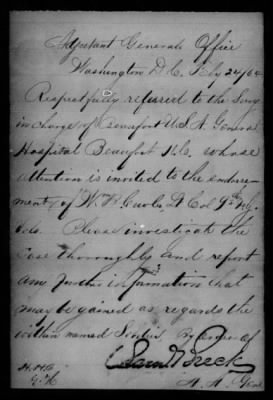 Adjutant General's Office
Washington D.C. Feby 24/64
Respectfully referred to the Surg
in charge of U.S.A. General
Hospital Beaufort whose
attention is invited to the endorse-
ment of W. Lt Col 9th
Please investigate the
Case thoroughly and report
any further information that
may be gained as regards the
within named By order of
Saml Breck
A. A. Genl